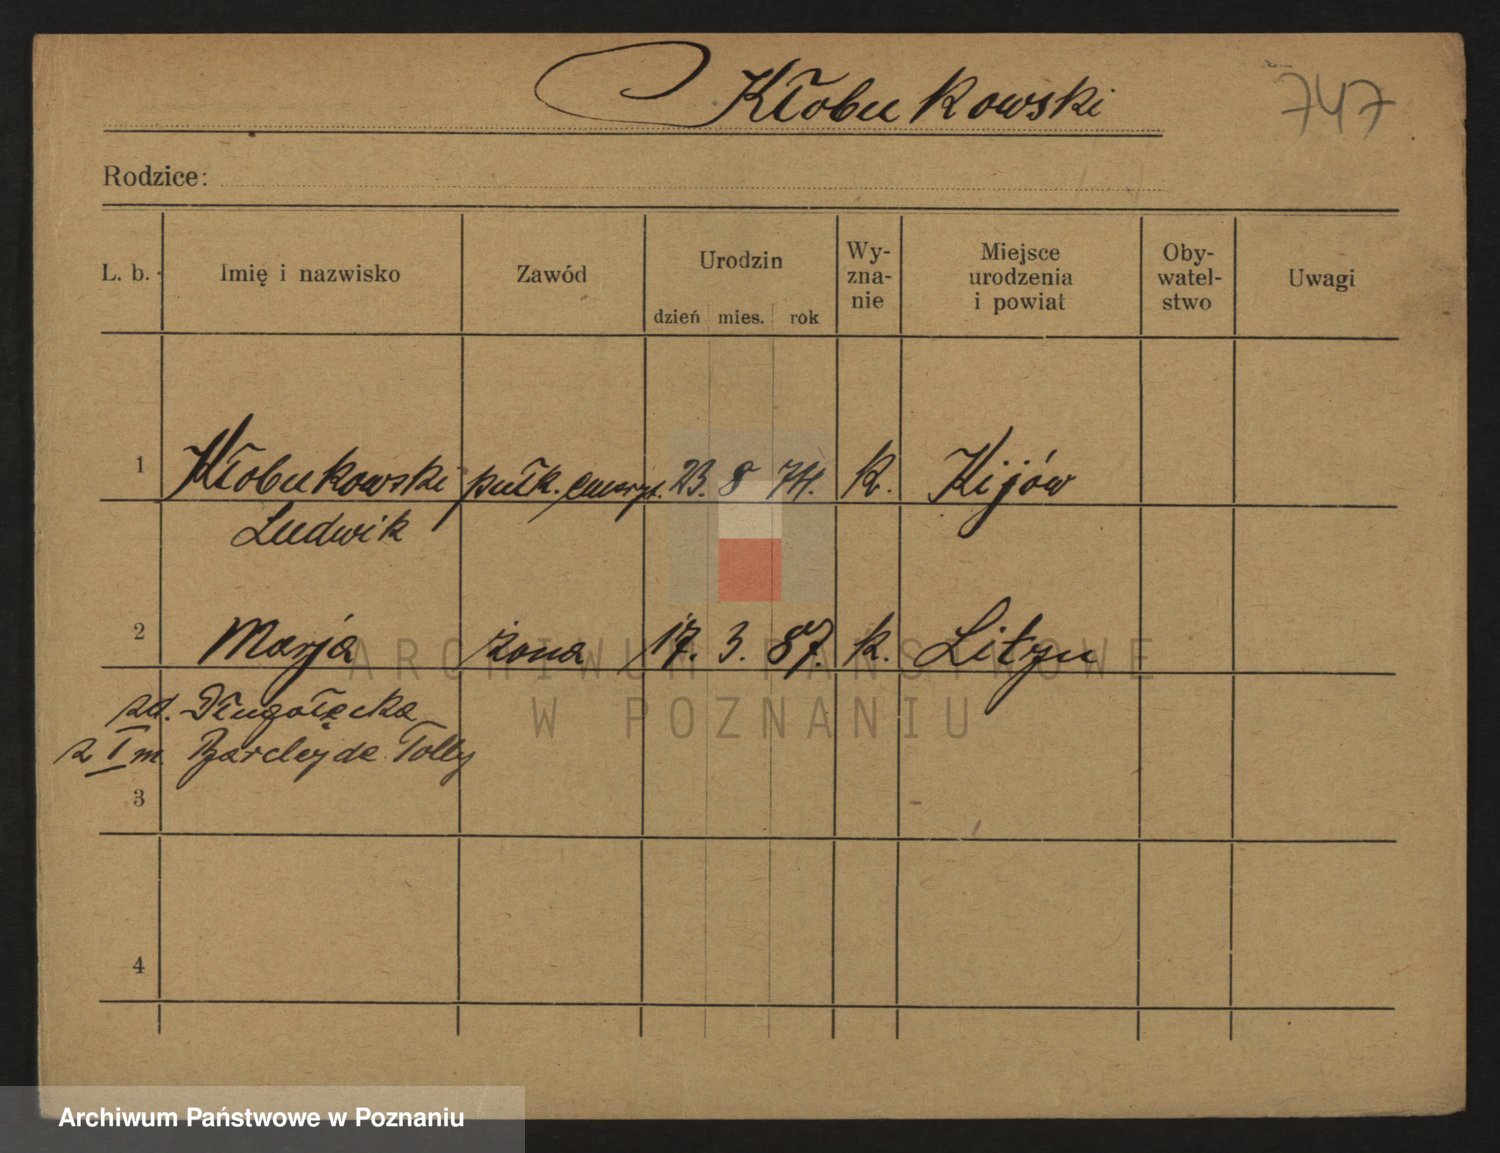 Kłobukowski
747
Rodzice:
L. b. Imię i nazwisko Zawód Urodzin dzień mies. rok Wy-zna-nie Miejsce urodzenia i powiat Oby-watel-stwo Uwagi
1 Kłobukowski pułk. emeryt. 23. 8 74. k. Kijów
Ludwik
2 Marja żona 17. 3. 87. k. Lityn
zd. Długołęcka
z I m. Barclay de Tolly
3
4
ARCHIWUM PAŃSTWOWE
W POZNANIU
Archiwum Państwowe w Poznaniu